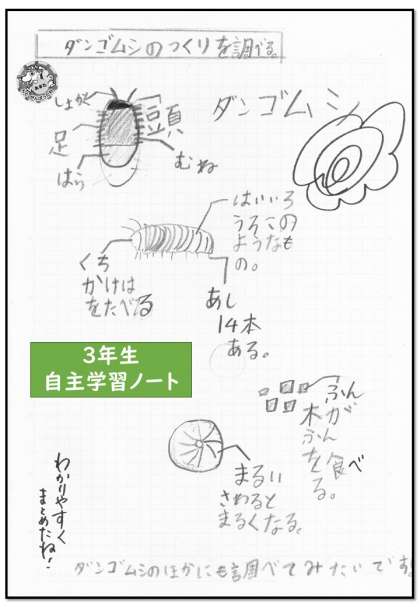 ダンゴムシのつくりを調べる。
ダンゴムシ
しょっかく
頭
足
むね
はら
はいいろ
うろこの
ようなも
の。
くち
かけは
をたべる
あし
14本
ある。
3年生
自主学習ノート
ふん
木が
ふん
を食べ
る。
まるい
さわると
まるくなる。
わかりやすく
まとめたね!
ダンゴムシのほかにも調べてみたいです。